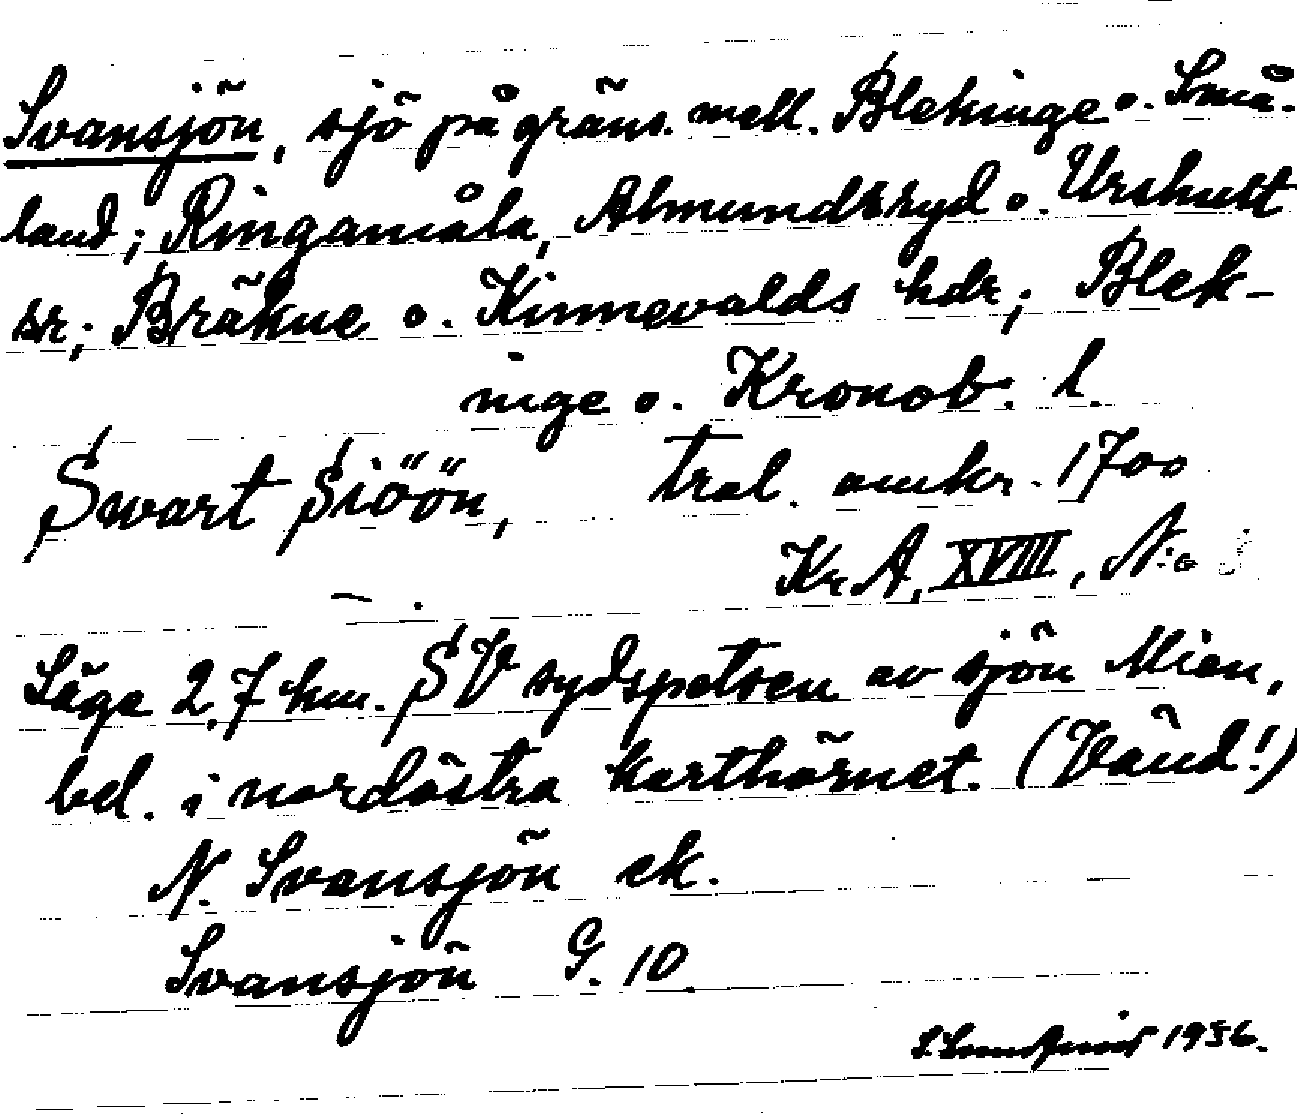 Svansjön, sjö på gräns. mell. Blekinge o. Små-
land; Ringamåla, Almundsryd o. Urshult
sr; Bräkne o. Kinnevalds hdr; Blek-
inge o. Kronob. l.
Swart Siöön, tral. omkr. 1700
KrA, XVIII, N:o
Läge 2,7 km. SV sydspetsen av sjön Mien,
bel. i nordöstra karthörnet. (Vänd!)
N. Svansjön ek.
Svansjön G. 10
S. Lundqvist 1936.